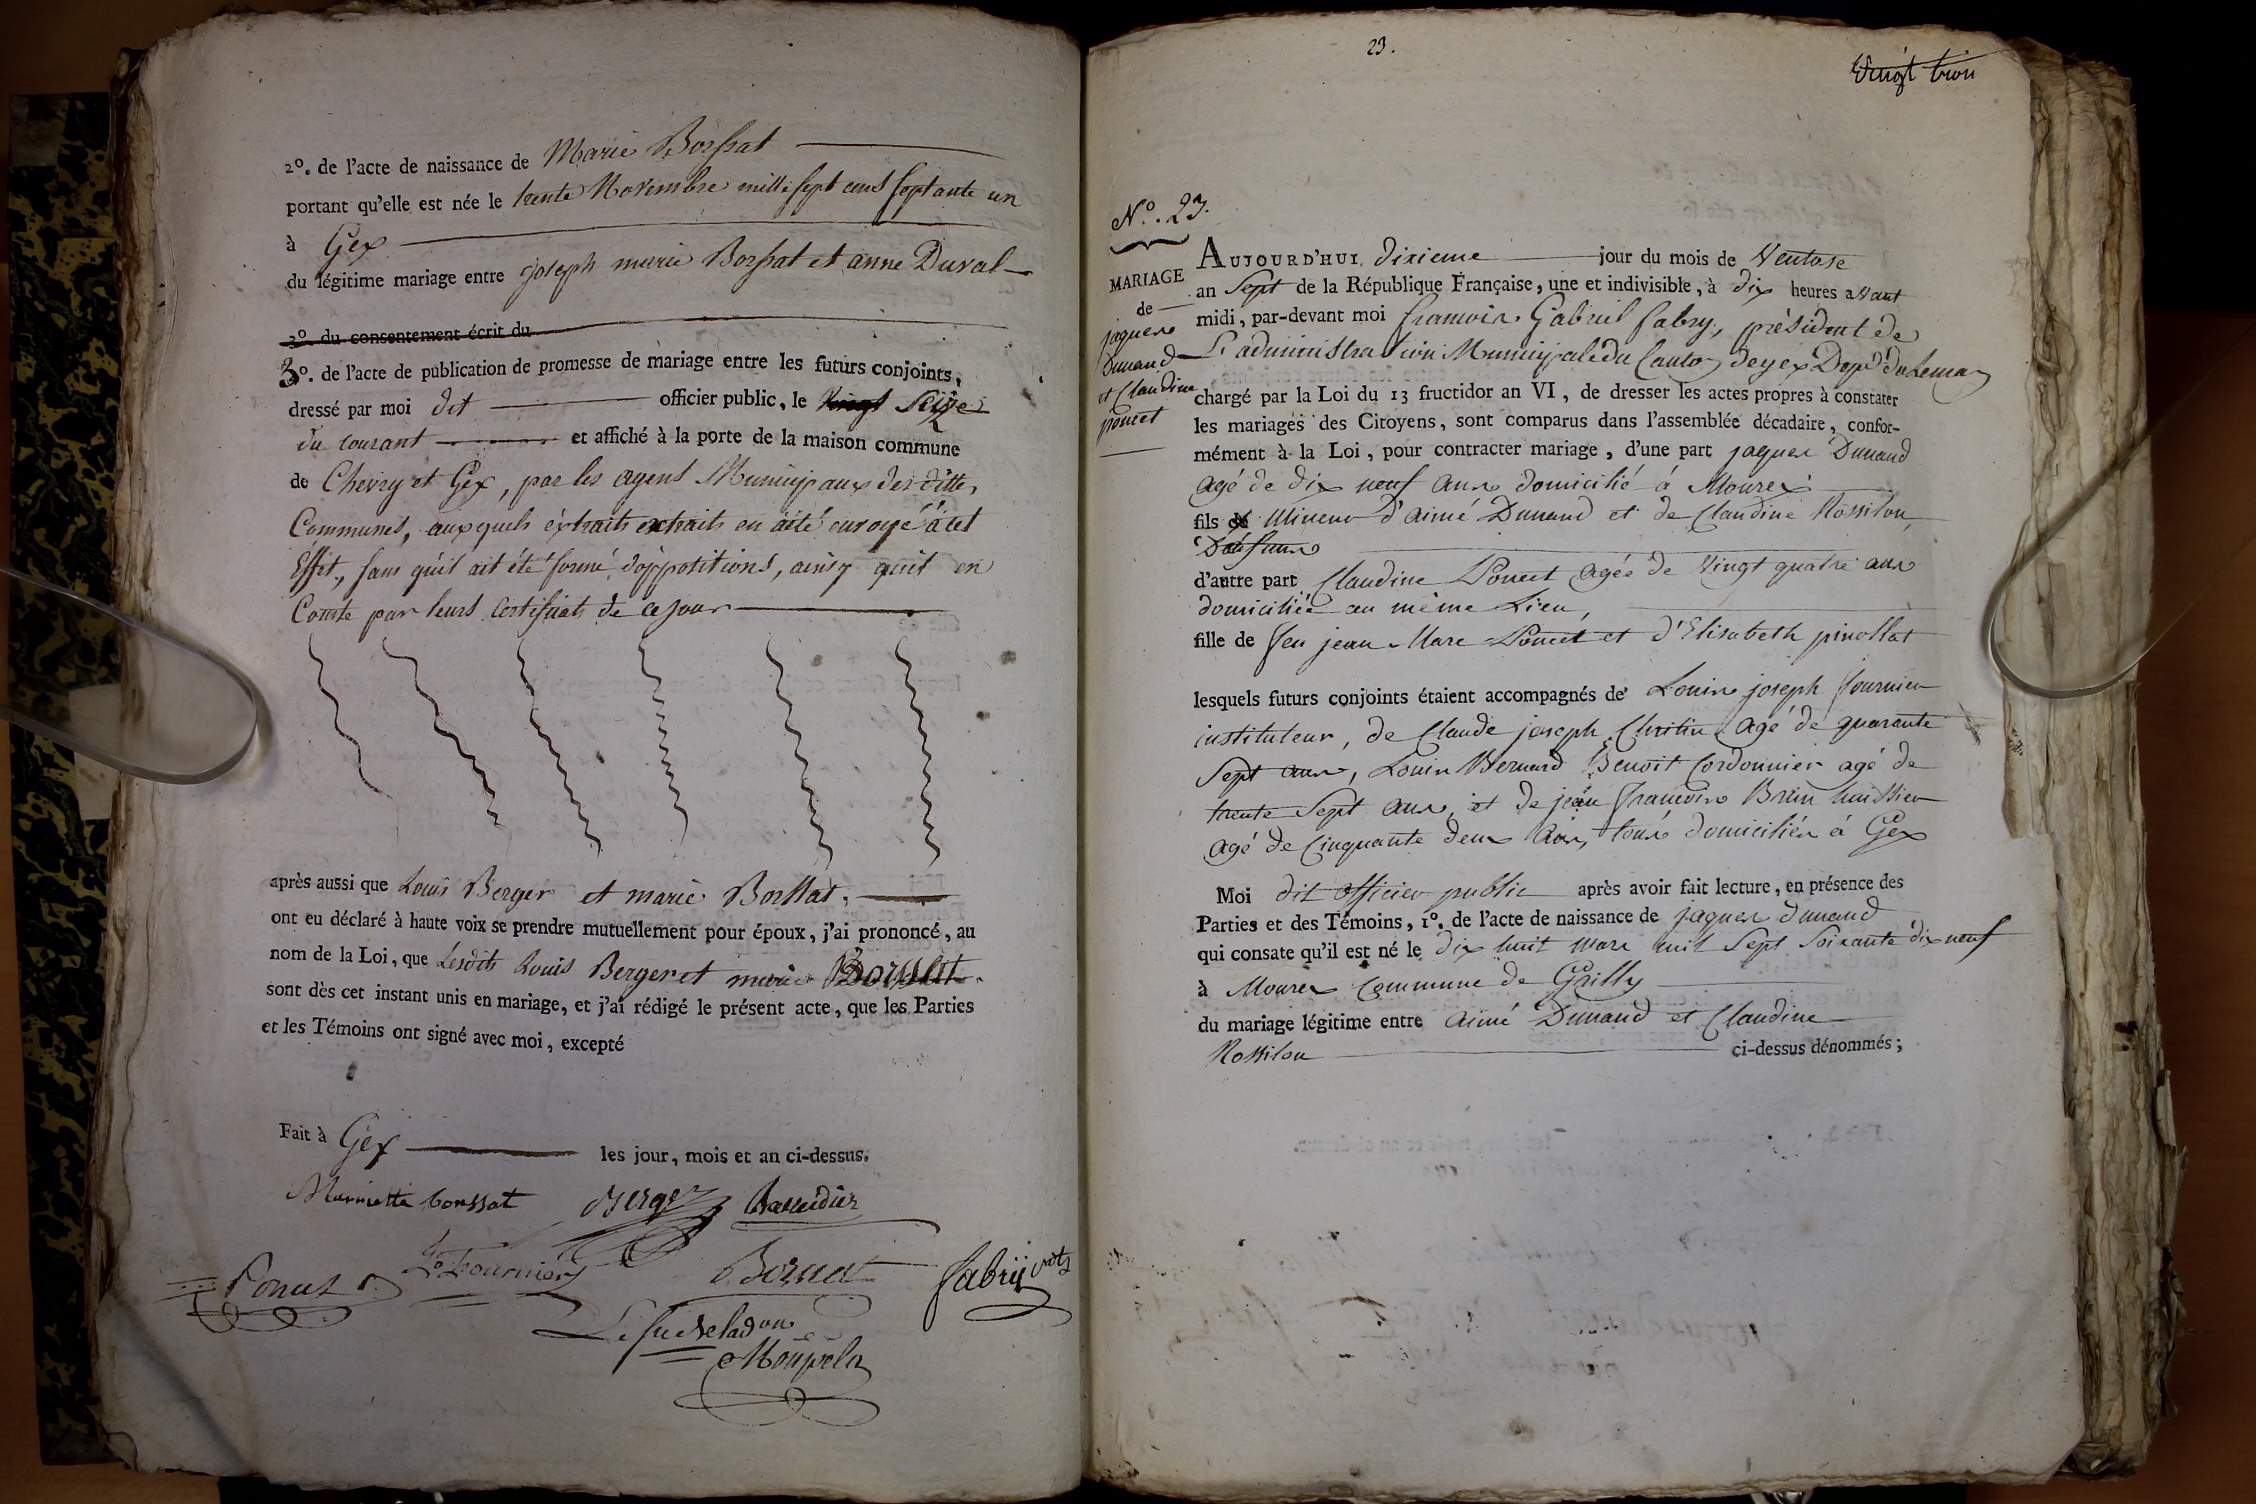 2º. de l'acte de naissance de Marie Borssat
portant qu'elle est née le trente Novembre mille sept cens septante un
à Gex
du légitime mariage entre joseph marie Borssat et anne Duval
3º du consentement écrit du
3º. de l'acte de publication de promesse de mariage entre les futurs conjoints,
dressé par moi dit officier public, le vingt Seize
du courant et affiché à la porte de la maison commune
de Chevry et Gex, par les agens Municipaux des ditte,
Communes, auxquels éxtraits extraits en aité envoyé à cet
Effet, sans qu'il ait été formé d'oppotitions, ainsy quil en
Conste par leurs Certificats de ce jour
après aussi que Louis Berger et marie Borssat.
ont eu déclaré à haute voix se prendre mutuellement pour époux, j'ai prononcé, au
nom de la Loi, que Lesdits Louis Berger et marie Borssat.
sont dès cet instant unis en mariage, et j'ai rédigé le présent acte, que les Parties
et les Témoins ont signé avec moi, excepté
Fait à Gex les jour, mois et an ci-dessus.
Mariette borssat Berger
Poncet Ls Fournier Fabry
23.
Vingt trois
Nº. 23.
MARIAGE
de
jaques
Dunand
et Claudine
poncet
AUJOURD'HUI dixieme jour du mois de Ventose
an Sept de la République Française, une et indivisible, à dix heures avant
midi, par-devant moi francois Gabriel fabry, président de
L'administration Municipale du Canton de gex Dept du Leman
chargé par la Loi du 13 fructidor an VI, de dresser les actes propres à constater
les mariages des Citoyens, sont comparus dans l'assemblée décadaire, confor-
mément à la Loi, pour contracter mariage, d'une part jaques Dunand
agé de dix neuf ans domicilié à Mourex
fils de Mineur d'aimé Dunand et de Claudine Rossilon,
Defunts
d'autre part Claudine Poncet agée de Vingt quatre ans
domiciliée au même Lieu,
fille de feu jean Marc Poncet et d'Elisabeth pinollat
lesquels futurs conjoints étaient accompagnés de Louis joseph fournier
instituteur, de Claude joseph Christin agé de quarante
Sept ans, Louis Bernard Benoit Cordonnier agé de
trente Sept ans, et de jean francois Brun huissier
agé de Cinquante deux ans, tous domiciliés à Gex
Moi dit officier public après avoir fait lecture, en présence des
Parties et des Témoins, 1º. de l'acte de naissance de jaques dunand
qui consate qu'il est né le dix huit mars mil Sept Soixante dix neuf
à Mourex Commune de Grilly
du mariage légitime entre aimé Dunand et Claudine
Rossilon ci-dessus dénommés;